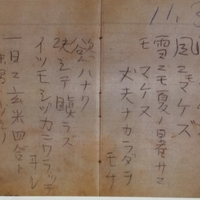 11. 3
風ニモマケズ
雪ニモ夏ノ暑サニ
モ マケヌ
丈夫ナカラダヲ
モチ
慾ハナク
決シテ瞋ラズ
イツモシヅカニワラッテ
ヰル
一日ニ玄米四合ト